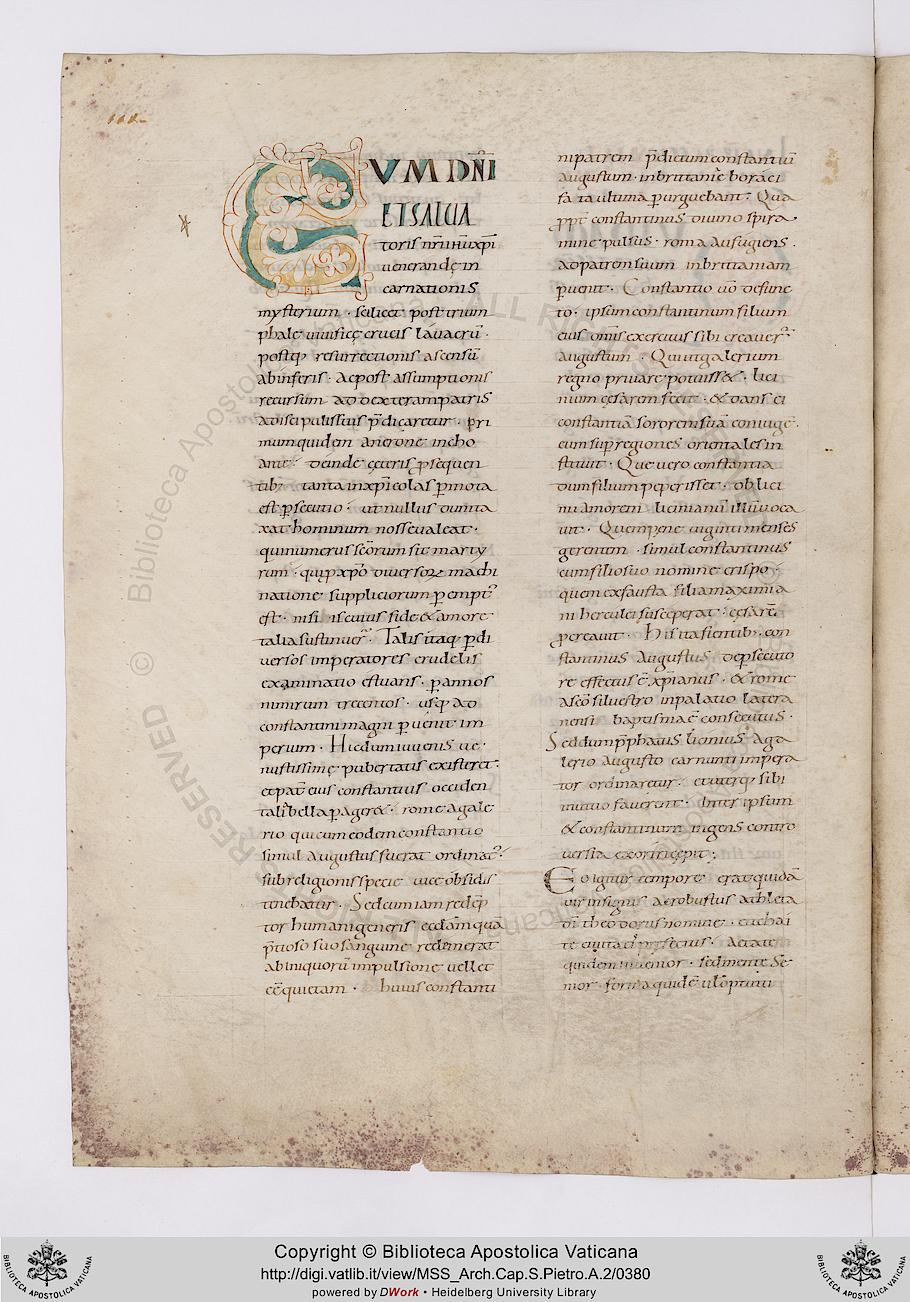 CUM DN̄I
ET SALUA
toris nr̄i ihu xp̄i
uenerandę in
carnationis
mysterium · scilicet post trium
phale uiuificę crucis lauacrū ·
postq; resurrectionis ascensū
ab inferis · ac post assumptionis
recursum ad dexteram patris
a discipulis suis p̄dicaretur · pri
mum quidem a nerone incho
ante deinde çeteris p̱sequen
tib; tanta in xp̄icolas p̱mota
est p̱secutio · ut nullus dumta
xat hominum nosse ualeat ·
qui numerus sc̄orum sit marty
rum · qui p̱ xp̄o diuersoꝝ machi
natione suppliciorum p̱empt᾽
est · nisi is cuius fide & amore
talia sustinuer̄ · Talis itaq; p̱ di
uersos imperatores crudelis
exanimatio estuans · p̱ annos
nimirum trecentos · usq; ad
constantini magni p̱uenit im
perium · Hic dum iuuenis ue
nustissimę pubertatis existeret ·
et pat̄ eius constantius occiden
tali bella p̱ager& · rome a gale
rio qui cum eodem constantio
simul augustus fuerat ordinat᾽ ·
sub religionis specie uice obsidis
tenebatur · Sed cum iam redēp
tor humani generis eccl̄am quā
p̄tioso suo sanguine redimerat
ab iniquorū impulsione uellet
eē quietam · huius constanti
ni patrem p̄dictum constantiū
augustum · in brittanie boraci
ua ultima p̱urguebant · Qua
ppt̄ constantinus diuino spira
mine pulsus · roma aufugiens ·
ad patrem suum in brittaniam
p̱uenit · Constantio u͞o defunc
to · ipsum constantinum filium
eius omnis exercitus sibi creauer̄
augustum · Qui ut galerium
regno priuare potuiss& · lici
nium çęsarem fecit · & dans ei
constantiā sororem suā coniuge
eum sup̱ regiones orientales in
stituit · Que uero constantia
dum filium peperisset · ob lici
nii amorem licinianū illū uoca
uit · Quem pene uiginti menses
gerentem · simul constantinus
cum filio suo nomine crispo ·
quem ex fausta filia maximia
ni herculei susceperat · cęsarē
p̱creauit · His ita sientib; · con
stantinus augustus de p̱secuto
re effectus ē xp̄ianus · & rome
a sc̄o siluestro in palatio latera
nensi baptisma ē consecutus ·
Sed dum p̄phatus licinius a ga
lerio augusto carnunti impera
tor ordinaretur · et uterq; sibi
mutuo fauerent · Inter ipsum
& constantinum ingens contro
uersia exoriri cępit ;
Eo igitur tempore erat quidā
uir insignis ac robustus athleta
dī theodorus nomine · euchai
te ciuitati p̄fectus · Aetate
quidem iunior · sed mente se
nior · forma quidē